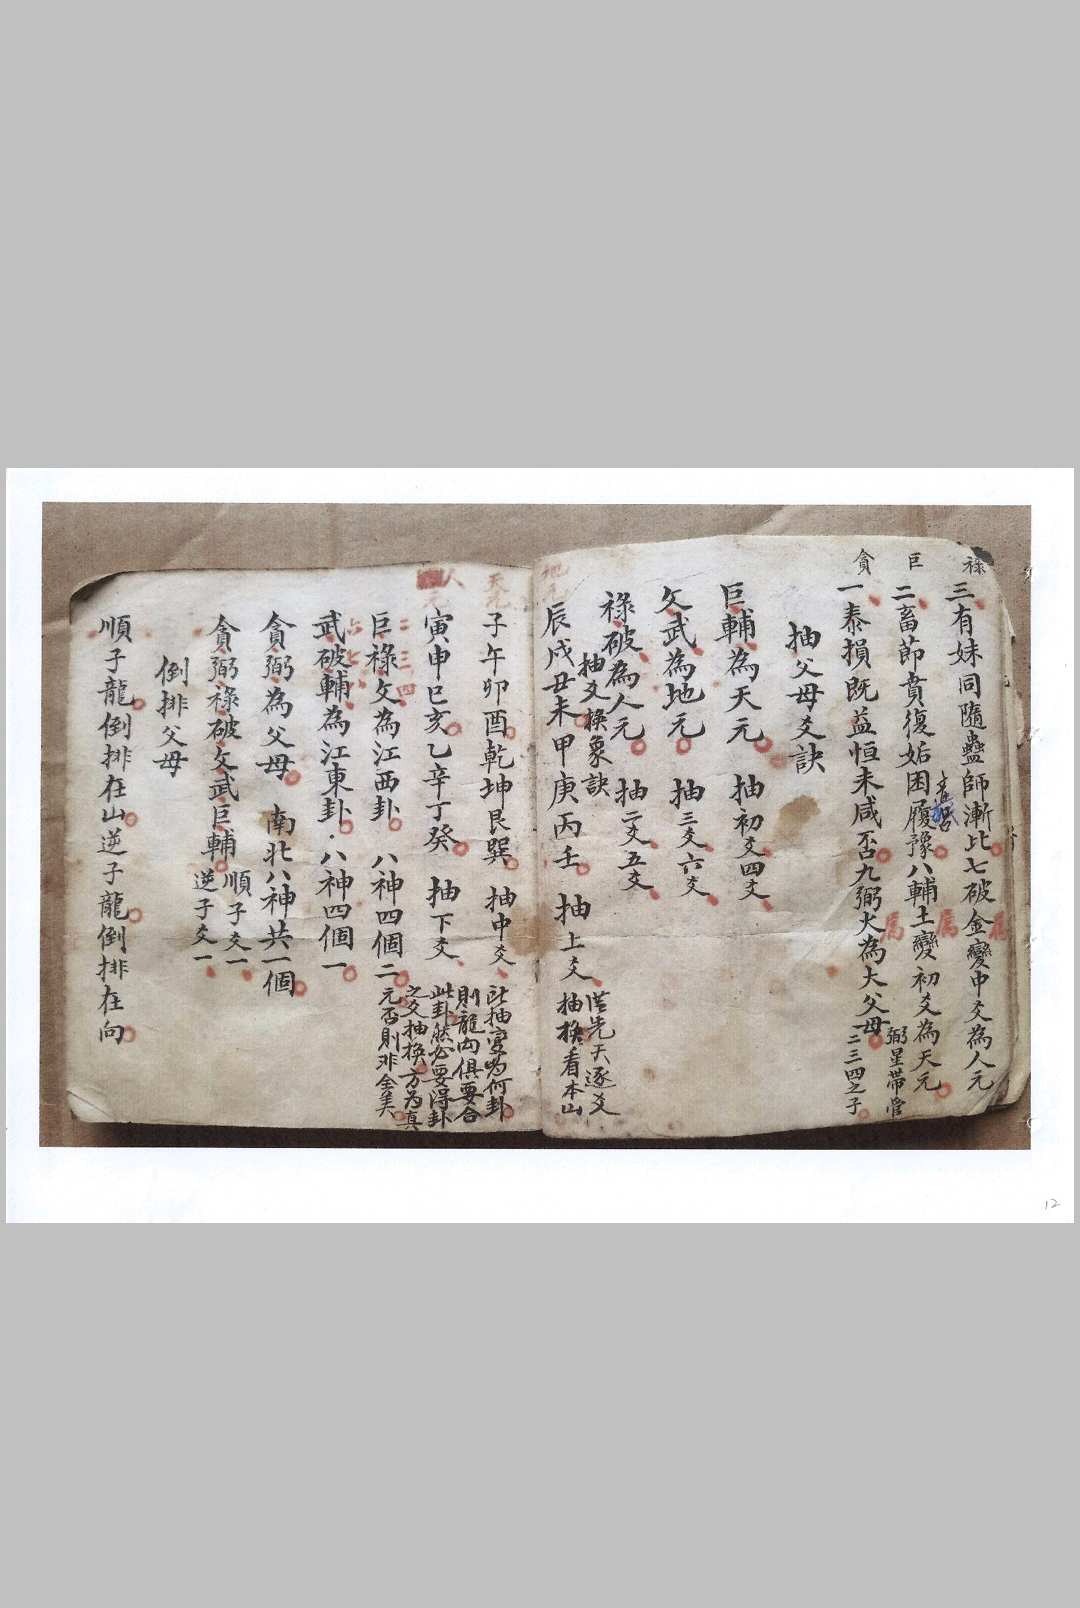 祿
三有妹同隨蠱師漸比七破金變中爻為人元
巨
二畜節賁復姤困履豫八輔土變初爻為天元
弼星帶管
貪
一泰損既益恒未咸否九弼火為大父母
二三四之子
抽父母爻訣
巨輔為天元 抽初爻四爻
文武為地元 抽三爻六爻
祿破為人元 抽二爻五爻
抽爻換象訣
地元
辰戌丑未甲庚丙壬 抽上爻
從先天逐爻
抽換看本山
天元
子午卯酉乾坤艮巽 抽中爻
此抽變為何卦
則龍向俱要合
人元
寅申巳亥乙辛丁癸 抽下爻
此卦然必要得卦
之爻抽換方為真
元否則非全美
二三四
巨祿文為江西卦 八神四個二
六七八
武破輔為江東卦·八神四個一
貪弼為父母 南北八神共一個
貪弼祿破文武巨輔
順子爻一
逆子爻一
倒排父母
順子龍倒排在山逆子龍倒排在向
12